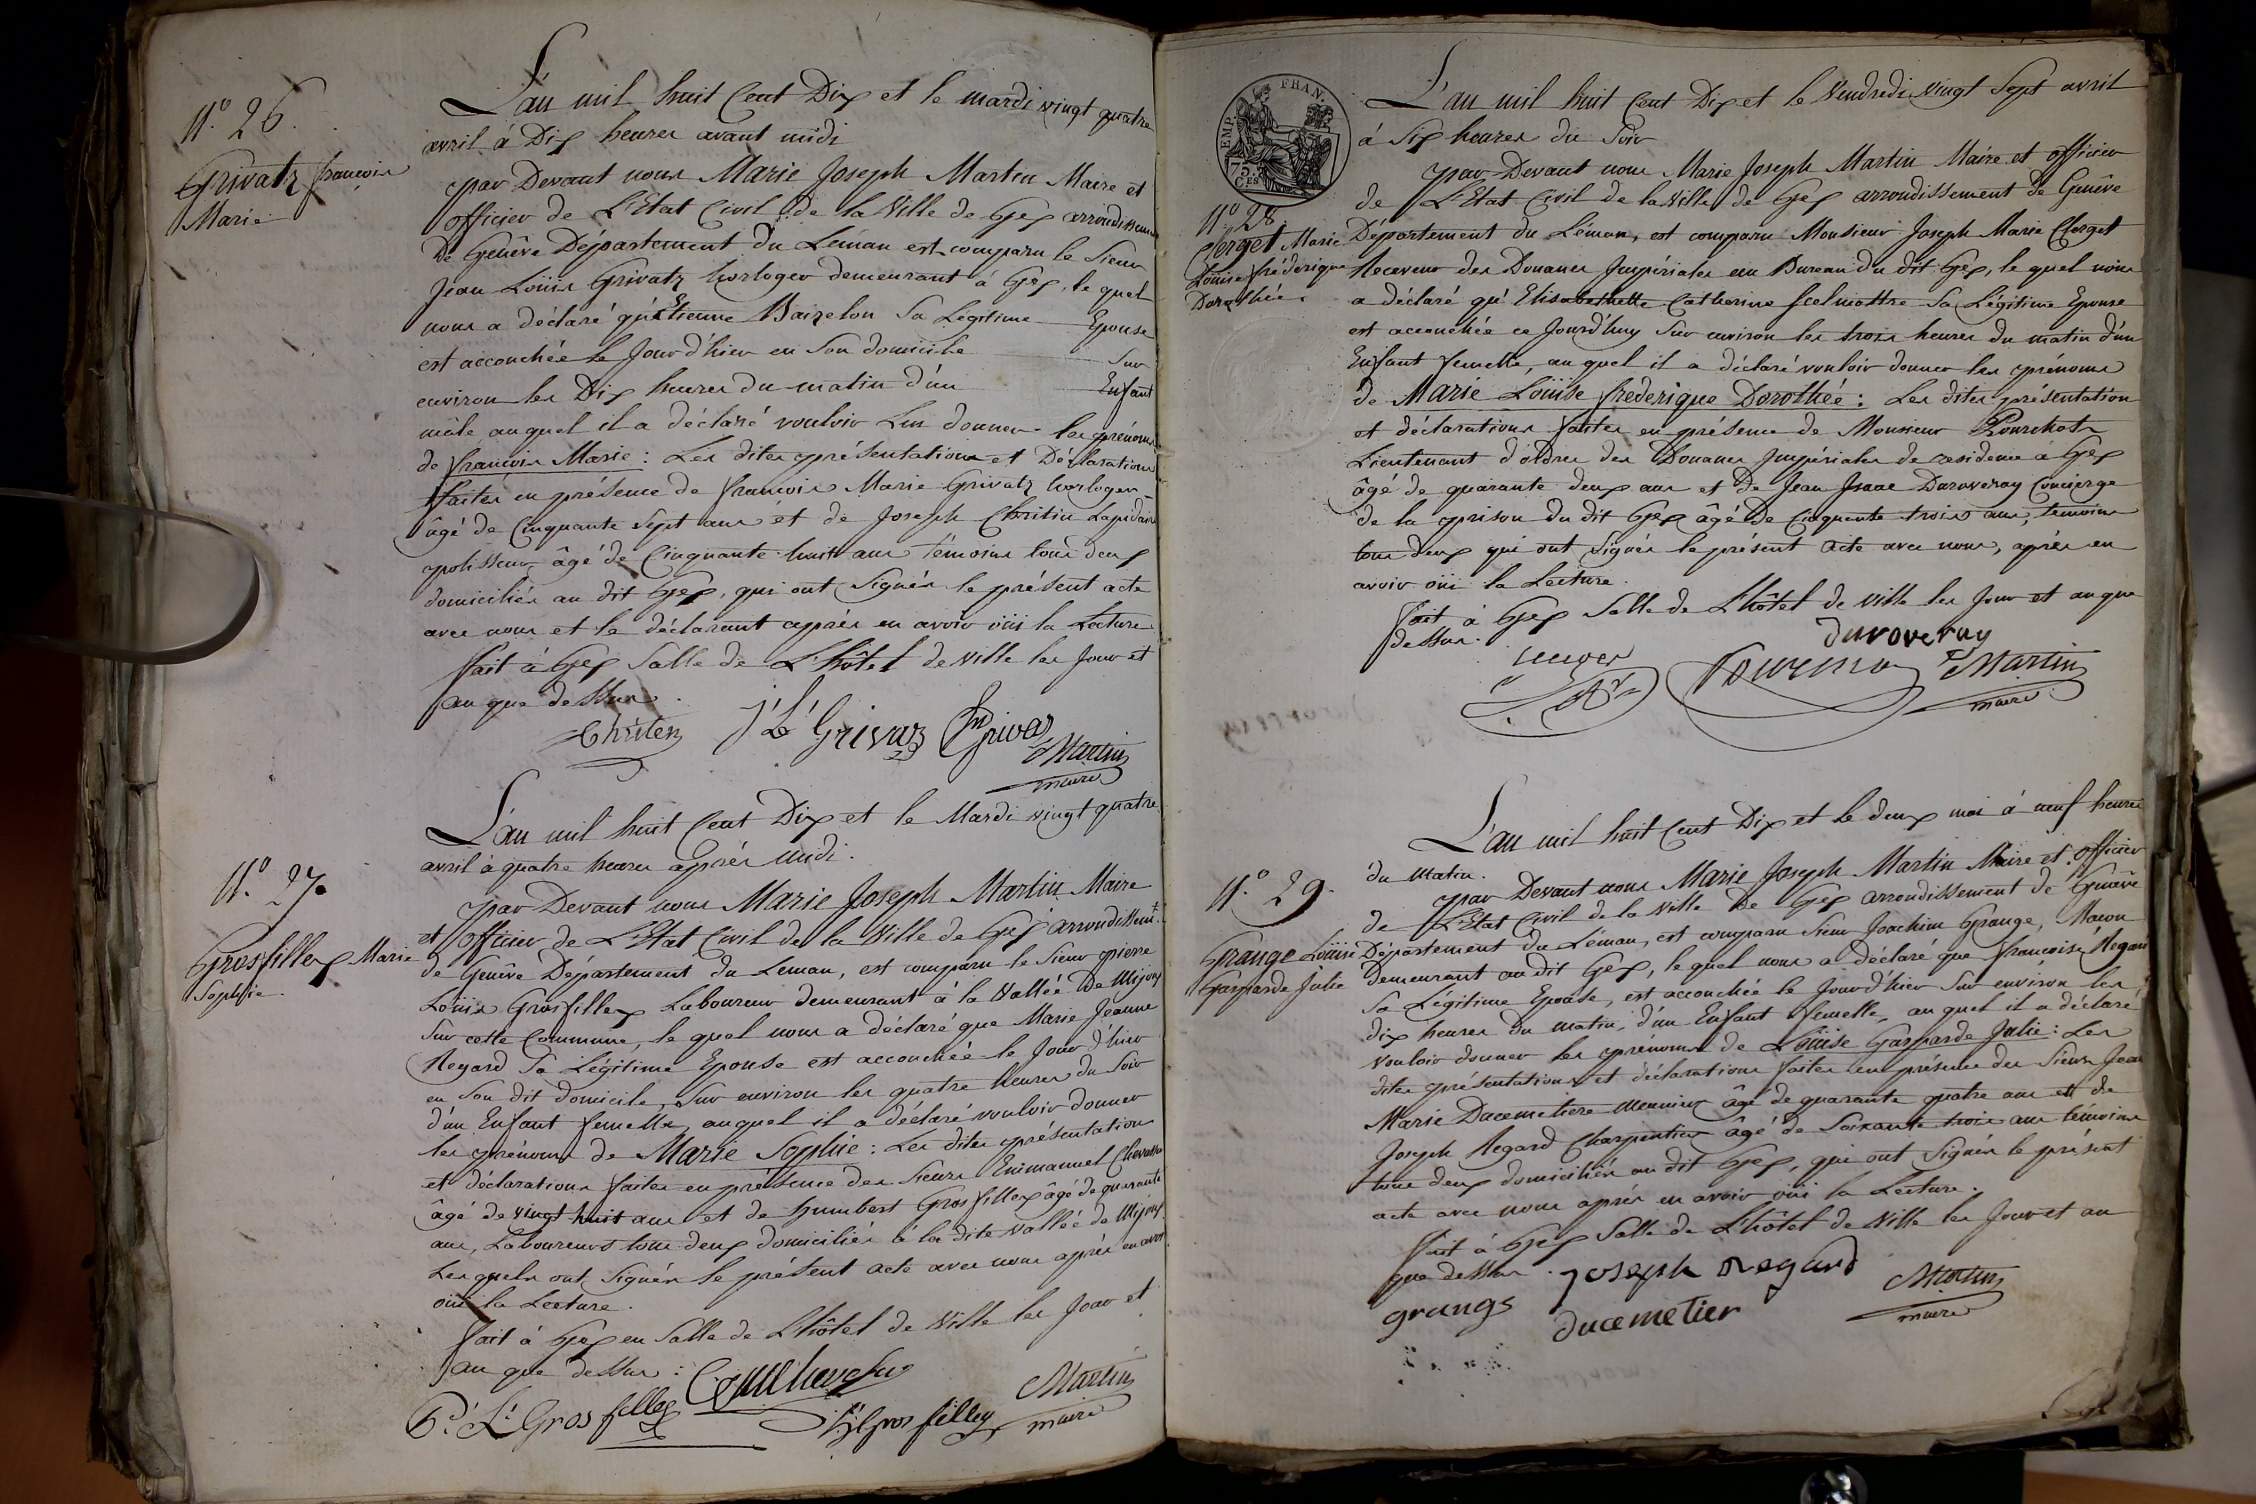 N.º 26.
Grivatz françois
Marie
L'an mil huit Cent Dix et le mardi vingt quatre
avril à Dix heures avant midi
par Devant nous Marie Joseph Martin Maire et
officier de L'Etat Civil de la Ville de Gex arrondissement
De Genêve Département du Léman est comparu le Sieur
Jean Loüis Grivatz horloger demeurant à Gex, le quel
nous a déclaré qu'Etienne Baizelon Sa Légitime Epouse
est accouchée le Jour d'hier en Son domicile Sur
environ les Dix heures du matin d'un Enfant
mâle, auquel il a déclaré vouloir Lui donner les prénoms
de françois Marie : Les dites présentations et Déclarations
faites en présence de françois Marie Grivatz horloger
âgé de Cinquante Sept ans et de Joseph Christin Lapidaire
polisseur, âgé de Cinquante huit ans témoins tous deux
domiciliés au dit Gex, qui ont Signés le présent acte
avec nous et le déclarant apprès en avoir oüi la Lecture
fait à Gex Salle de L'hôtel de Ville les Jour et
an que dessus.
Christen J Ls Grivaz Grivaz
Martin
maire
N.º 27.
Grosfillex Marie
Sophie.
L'an mil huit Cent Dix et le Mardi vingt quatre
avril à quatre heures après midi.
par Devant nous Marie Joseph Martin Maire
et officier de L'Etat Civil de la Ville de Gex arrondissemt
de Genêve Département du Leman, est comparu le Sieur pierre
Loüis Grosfillex Laboureur demeurant à la Vallée de Mijoux
Sur cette Commune, le quel nous a déclaré que Marie Jeanne
Regard Sa Légitime Epouse est accouchée le Jour d'hier
en Son dit domicile, Sur environ les quatre heures du Soir
d'un Enfant femelle, auquel il a déclaré vouloir donner
les prénoms de Marie Sophie : Les dites présentation
et déclarations faites en présence des Sieurs Emmanuel Chevassu
âgé de vingt huit ans et de humbert Grosfillex âgé de quarante
ans, Laboureurs tous deux domiciliés à la dite Vallée de Mijoux
Lesquels ont Signés le présent acte avec nous après en avoir
oüi la Lecture.
fait à Gex en Salle de L'hôtel de Ville les Jour et
an que dessus :
P. Ls Gros fillex Chevassu
Gros filley Martin
maire
EMP. FRAN.
75 CES
N.º 28.
Clerget Marie
Loüise fréderique
Dorothée.
L'an mil huit Cent Dix et le Vendredi vingt Sept avril
à Six heures du Soir
par Devant nous Marie Joseph Martin Maire et officier
de L'Etat Civil de la Ville de Gex arrondissement de Genêve
Département du Léman, est comparu Monsieur Joseph Marie Clerget
Receveur des Douanes Impériales au Bureau du dit Gex, le quel nous
a déclaré qu'Elisabethette Catherine Sa Légitime Epouse
est accouchée ce Jourd'huy Sur environ les trois heures du matin d'un
Enfant femelle, auquel il a déclaré vouloir donner les prénoms
de Marie Loüise frederique Dorothée : Les dites présentation
et déclarations faites en présence de Monsieur Pourchot
Lieutenant d'ordre des Douanes Impériales de residence à Gex
âgé de quarante deux ans et de Jean Isaac Duroveray Concierge
de la prison du dit Gex âgé de Cinquante trois ans, temoins
tous deux qui ont Signés le présent Acte avec nous, après en
avoir oüi la Lecture.
fait à Gex Salle de L'hôtel de Ville les Jour et an que
dessus.
duroveray
Martin
maire
N.º 29.
Grange Loüise
Gasparde Julie
L'an mil huit Cent Dix et le deux mai à neuf heures
du matin.
par Devant nous Marie Joseph Martin Maire et officier
de L'Etat Civil de la Ville de Gex arrondissement de Genêve
Département du Léman, est comparu Sieur Joachim Grange, Macon
Demeurant au dit Gex, le quel nous a déclaré que françoise Regard
Sa Légitime Epouse, est accouchée le Jour d'hier Sur environ les
dix heures du matin, d'un Enfant femelle, au quel il a déclaré
vouloir donner les prénoms de Loüise Gasparde Julie : Les
dites présentations et déclarations faites en présence des Sieurs Jean
Marie Ducemetiere Meunier âgé de quarante quatre ans et de
Joseph Regard Charpentier âgé de Soixante trois ans temoins
tous deux domiciliés au dit Gex, qui ont Signés le présent
acte avec nous après en avoir oüi la Lecture.
fait à Gex Salle de L'hôtel de Ville les Jour et an
que dessus. joseph Regard Martin
grange ducemetier maire